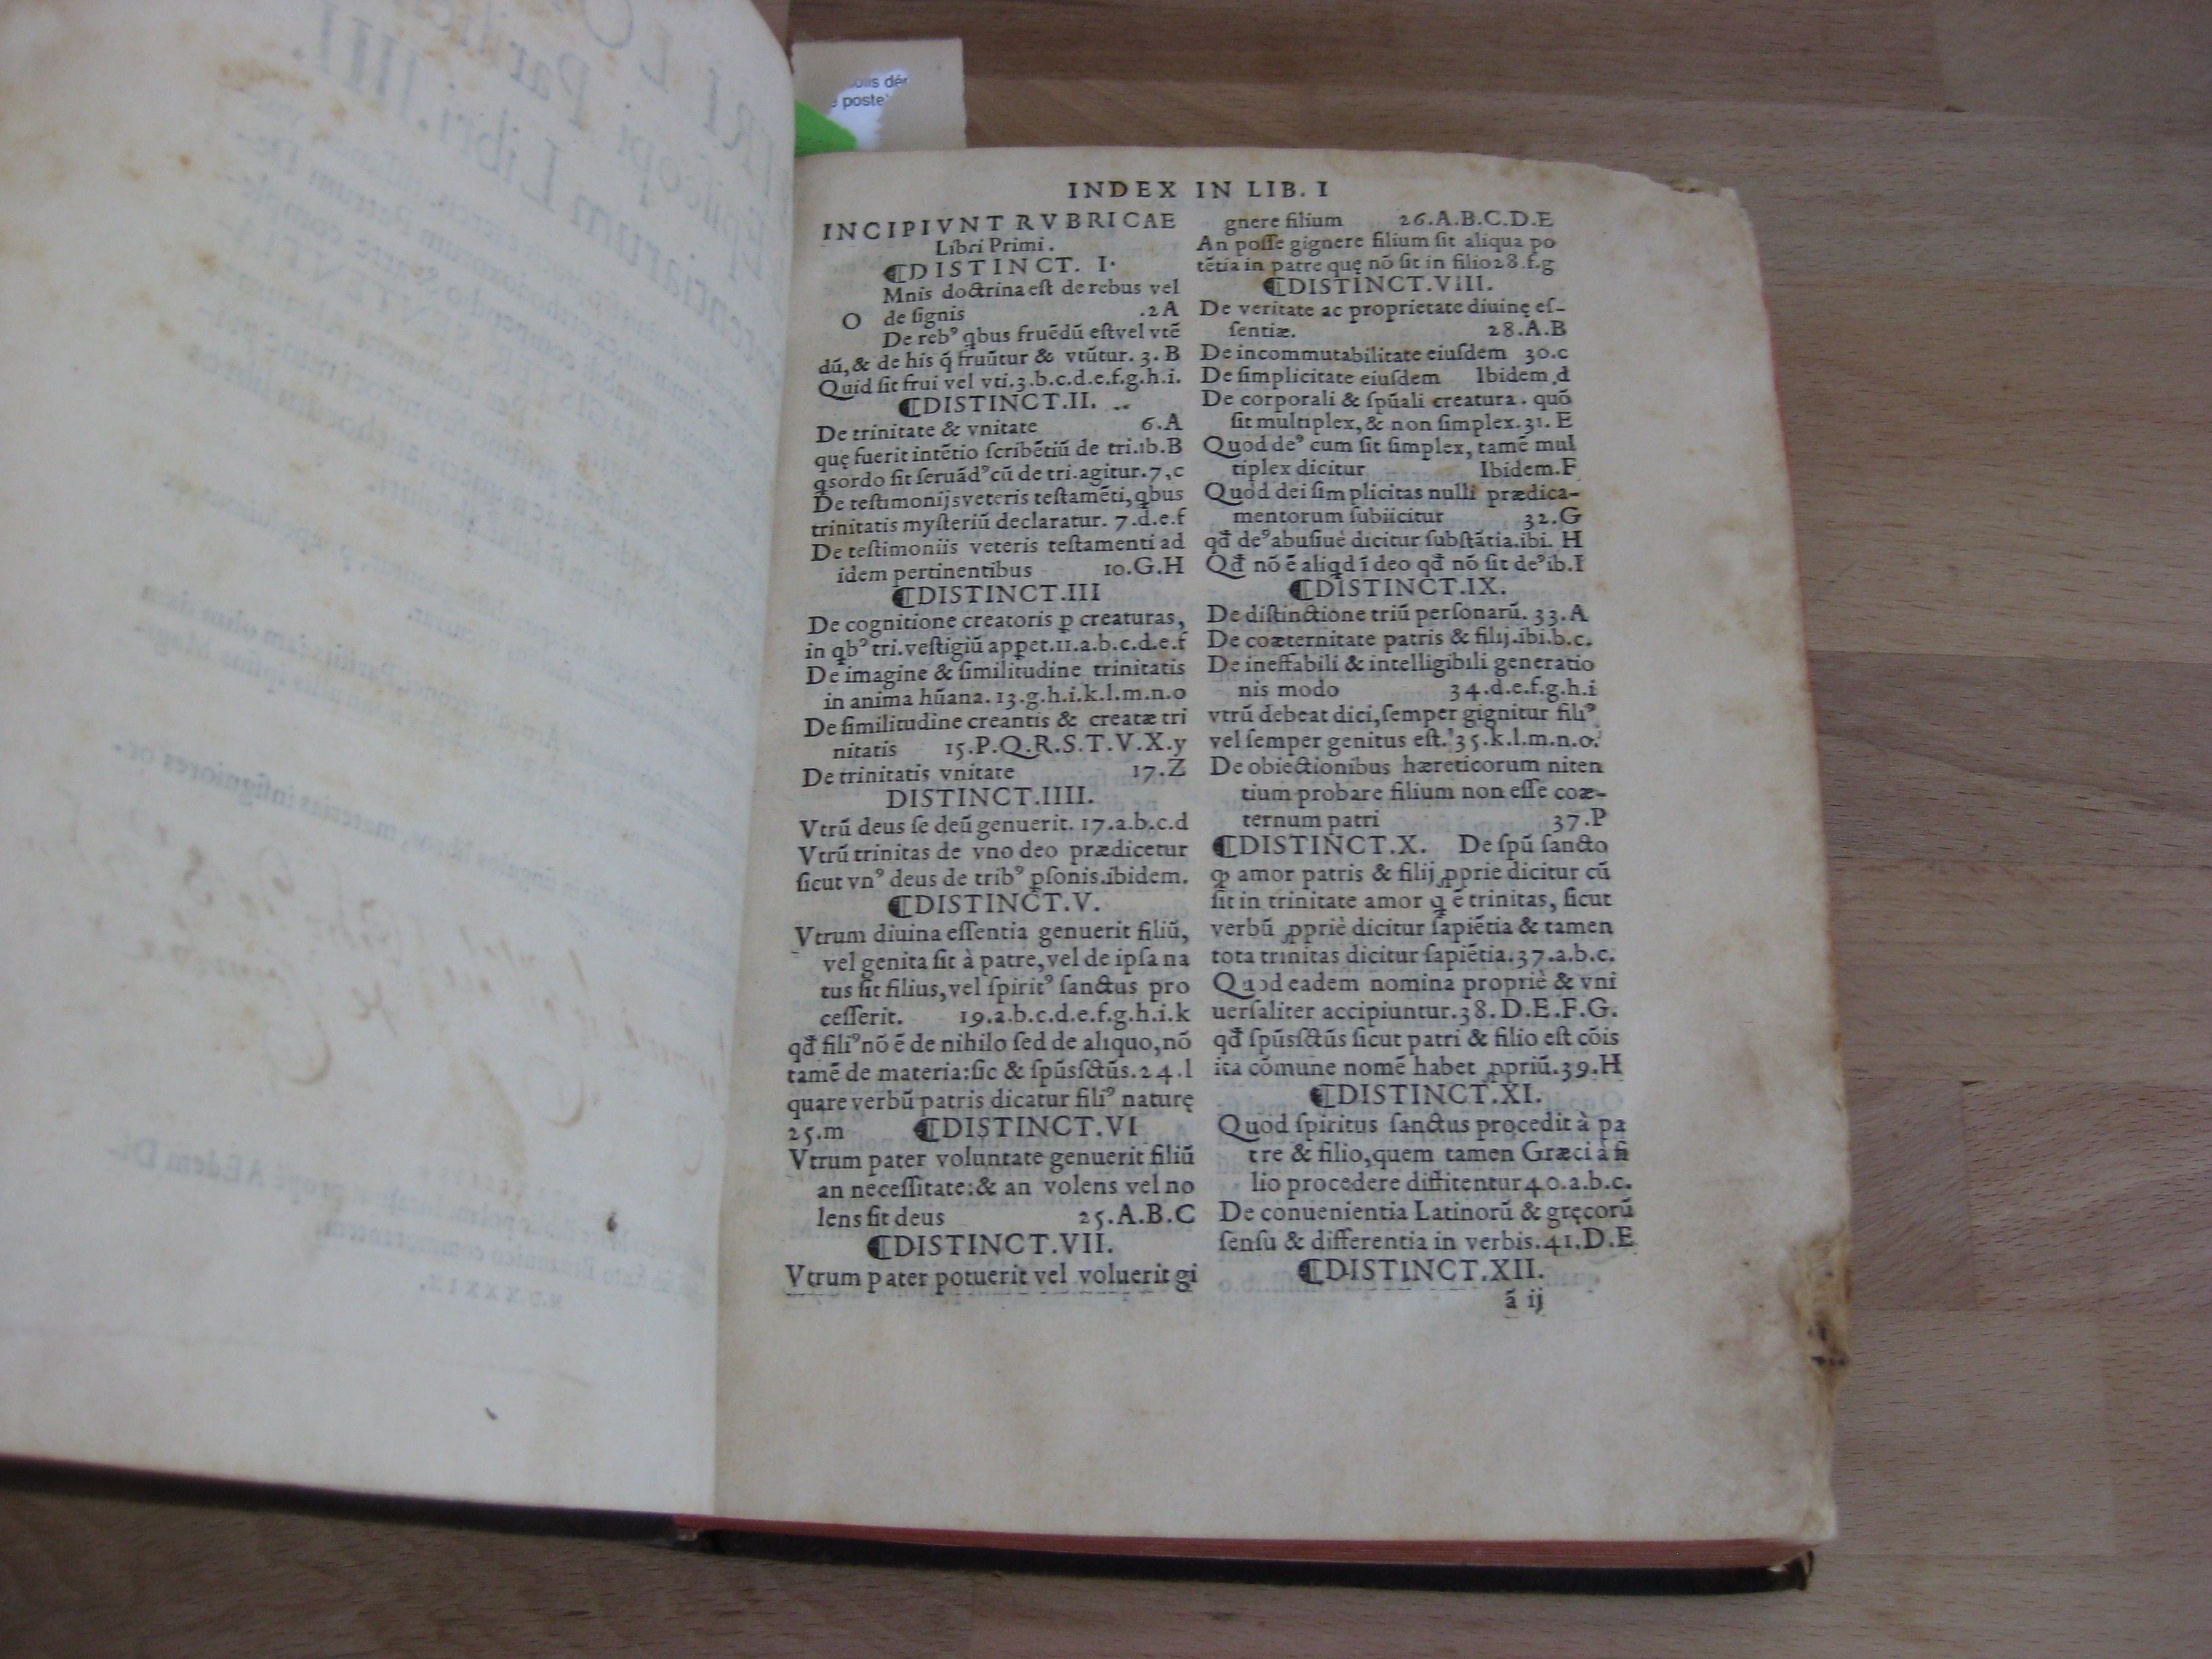 INDEX IN LIB. I
INCIPIVNT RVBRICAE
Libri Primi.
⁋DISTINCT. I.
OMnis doctrina est de rebus vel
de signis .2A
De reb⁹ qbus fruẽdũ est vel vtẽ
dũ, & de his q́ fruũtur & vtũtur. 3. B
Quid sit frui vel vti.3.b.c.d.e.f.g.h.i.
⁋DISTINCT.II.
De trinitate & vnitate 6.A
quę fuerit intẽtio scribẽtiũ de tri.ib.B
qsordo sit seruãd⁹cũ de tri.agitur.7,c
De testimonijs veteris testamẽti, qbus
trinitatis mysteriũ declaratur. 7.d.e.f
De testimoniis veteris testamenti ad
idem pertinentibus 10.G.H
⁋DISTINCT.III
De cognitione creatoris ꝑ creaturas,
in qb⁹ tri.vestigiũ apꝑet.11.a.b.c.d.e.f
De imagine & similitudine trinitatis
in anima hũana. 13.g.h.i.k.l.m.n.o
De similitudine creantis & creatæ tri
nitatis 15.P.Q.R.S.T.V.X.y
De trinitatis vnitate 17.Z
DISTINCT.IIII.
Vtrũ deus se deũ genuerit. 17.a.b.c.d
Vtrũ trinitas de vno deo prædicetur
sicut vn⁹ deus de trib⁹ ꝑsonis.ibidem.
⁋DISTINCT.V.
Vtrum diuina essentia genuerit filiũ,
vel genita sit à patre, vel de ipsa na
tus sit filius, vel spirit⁹ sanctus pro
cesserit. 19.a.b.c.d.e.f.g.h.i.k
qđ fili⁹ nõ ẽ de nihilo sed de aliquo, nõ
tamẽ de materia: sic & spũssctũs.24.l
quare verbũ patris dicatur fili⁹ naturę
25.m ⁋DISTINCT.VI
Vtrum pater voluntate genuerit filiũ
an necessitate: & an volens vel no
lens sit deus 25.A.B.C
⁋DISTINCT.VII.
Vtrum pater potuerit vel voluerit gi
gnere filium 26.A.B.C.D.E
An posse gignere filium sit aliqua po
tẽtia in patre quę nõ sit in filio28.f.g
⁋DISTINCT.VIII.
De veritate ac proprietate diuinę es-
sentiæ. 28.A.B
De incommutabilitate eiusdem 30.c
De simplicitate eiusdem Ibidem,d
De corporali & spũali creatura. quõ
sit multiplex, & non simplex.31. E
Quod de⁹ cum sit simplex, tamẽ mul
tiplex dicitur Ibidem.F
Quod dei simplicitas nulli prædica-
mentorum subiicitur 32.G
qđ de⁹ abusiuè dicitur substãtia.ibi. H
Qđ nõ ẽ aliqd ĩ deo qđ nõ sit de⁹ib.I
⁋DISTINCT.IX.
De distinctione triũ personarũ. 33.A
De coæternitate patris & filij.ibi.b.c.
De ineffabili & intelligibili generatio
nis modo 34.d.e.f.g.h.i
vtrũ debeat dici, semper gignitur fili⁹
vel semper genitus est. 35.k.l.m.n.o.
De obiectionibus hæreticorum niten
tium probare filium non esse coæ-
ternum patri 37.P
⁋DISTINCT.X. De spũ sancto
ꝙ amor patris & filij ꝓprie dicitur cũ
sit in trinitate amor q ẽ trinitas, sicut
verbũ ꝓpriè dicitur sapiẽtia & tamen
tota trinitas dicitur sapiẽtia.37.a.b.c.
Quod eadem nomina propriè & vni
uersaliter accipiuntur.38. D.E.F.G.
qđ spũssctũs sicut patri & filio est cõis
ita cõmune nomẽ habet ꝓpriũ.39.H
⁋DISTINCT.XI.
Quod spiritus sanctus procedit à pa
tre & filio, quem tamen Græci à fi
lio procedere diffitentur40.a.b.c.
De conuenientia Latinorũ & gręcorũ
sensu & differentia in verbis.41.D.E
⁋DISTINCT.XII.
ã ij